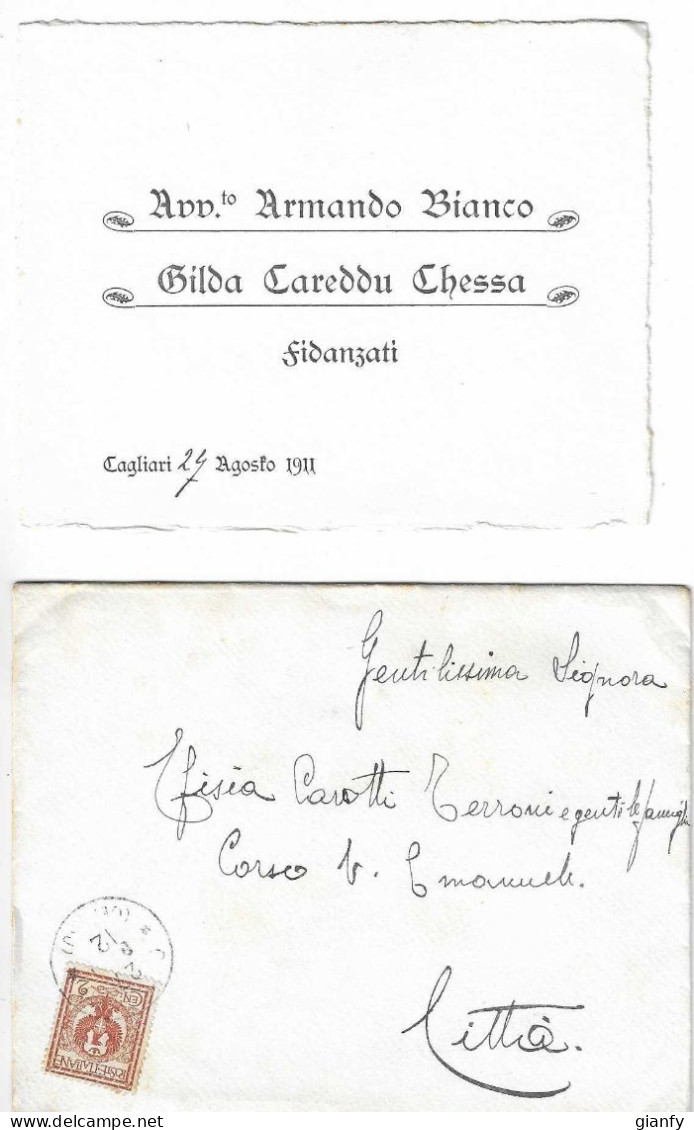 Avv.to Armando Bianco
Gilda Careddu Chessa
Fidanzati
Cagliari 24 Agosto 1911
Gentilissima Signora
Efisia Carotti Terroni e gentile famiglia
Corso V. Emanuele.
Città.
POSTE ITALIANE
CENT. 2
gianfy